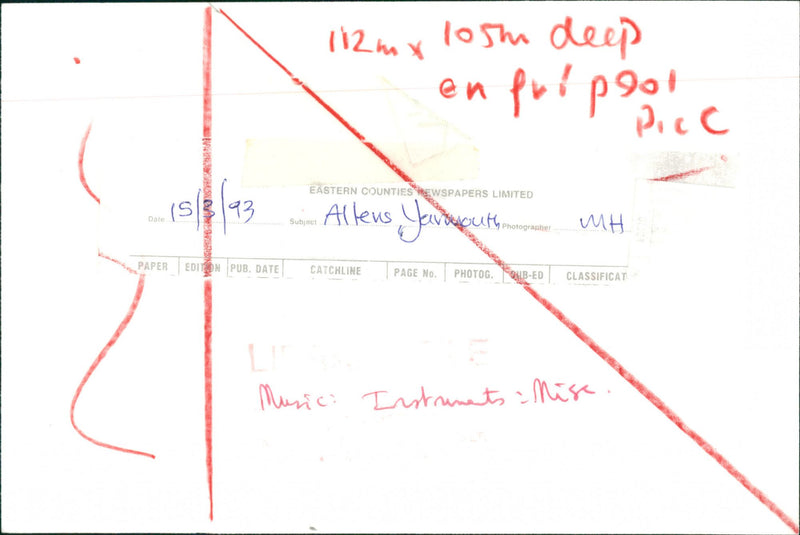 112m x 105m deep
en fri p901
Pic C
EASTERN COUNTIES NEWSPAPERS LIMITED
Date 15/3/93 Subject Allens, Yarmouth Photographer MH
PAPER EDITION PUB. DATE CATCHLINE PAGE No. PHOTOG. SUB-ED CLASSIFICAT
Music: Instruments: Misc.